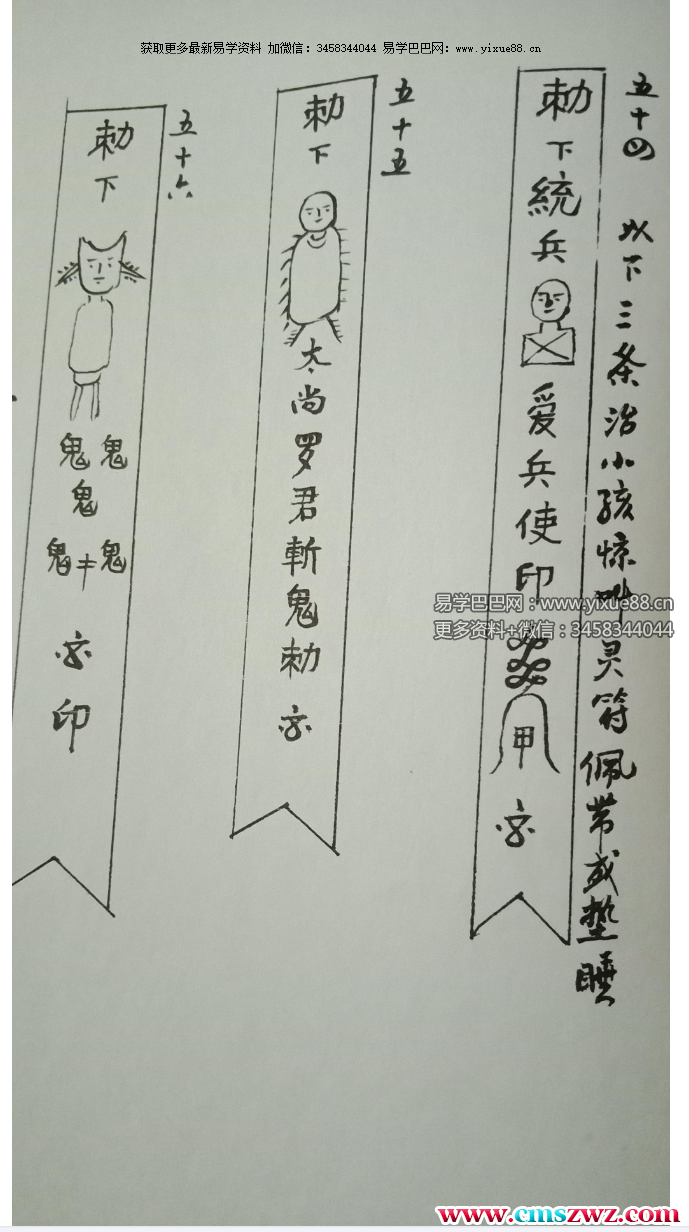 获取更多最新易学资料 加微信：3458344044 易学巴巴网：www.yixue88.cn
五十四 以下三条治小孩惊叫灵符佩带或垫睡
勅下統兵
爱兵使印
甲
五十五
勅下
太尚罗君斬鬼勅令
五十六
勅下
鬼鬼
鬼
鬼 鬼
印
易学巴巴网：www.yixue88.cn
更多资料+微信：3458344044
www.cmszwz.com